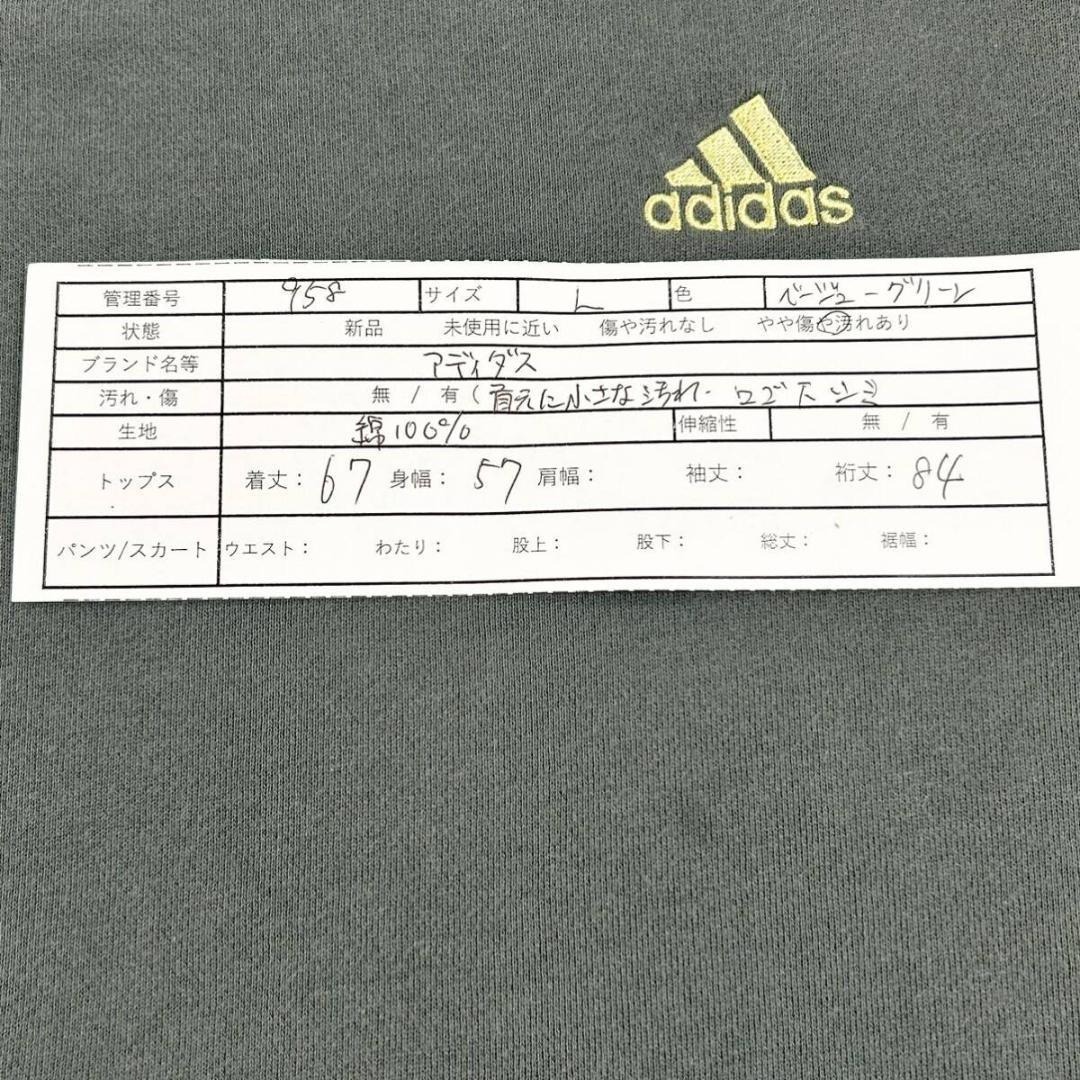 adidas
管理番号 958 サイズ L 色 ベージュ-グリーン
状態 新品 未使用に近い 傷や汚れなし やや傷や汚れあり
ブランド名等 アディダス
汚れ・傷 無 / 有 ( 首元に小さな汚れ・ロゴ下シミ
生地 綿100% 伸縮性 無 / 有
トップス 着丈: 67 身幅: 57 肩幅: 袖丈: 裄丈: 84
パンツ/スカート ウエスト: わたり: 股上: 股下: 総丈: 裾幅: